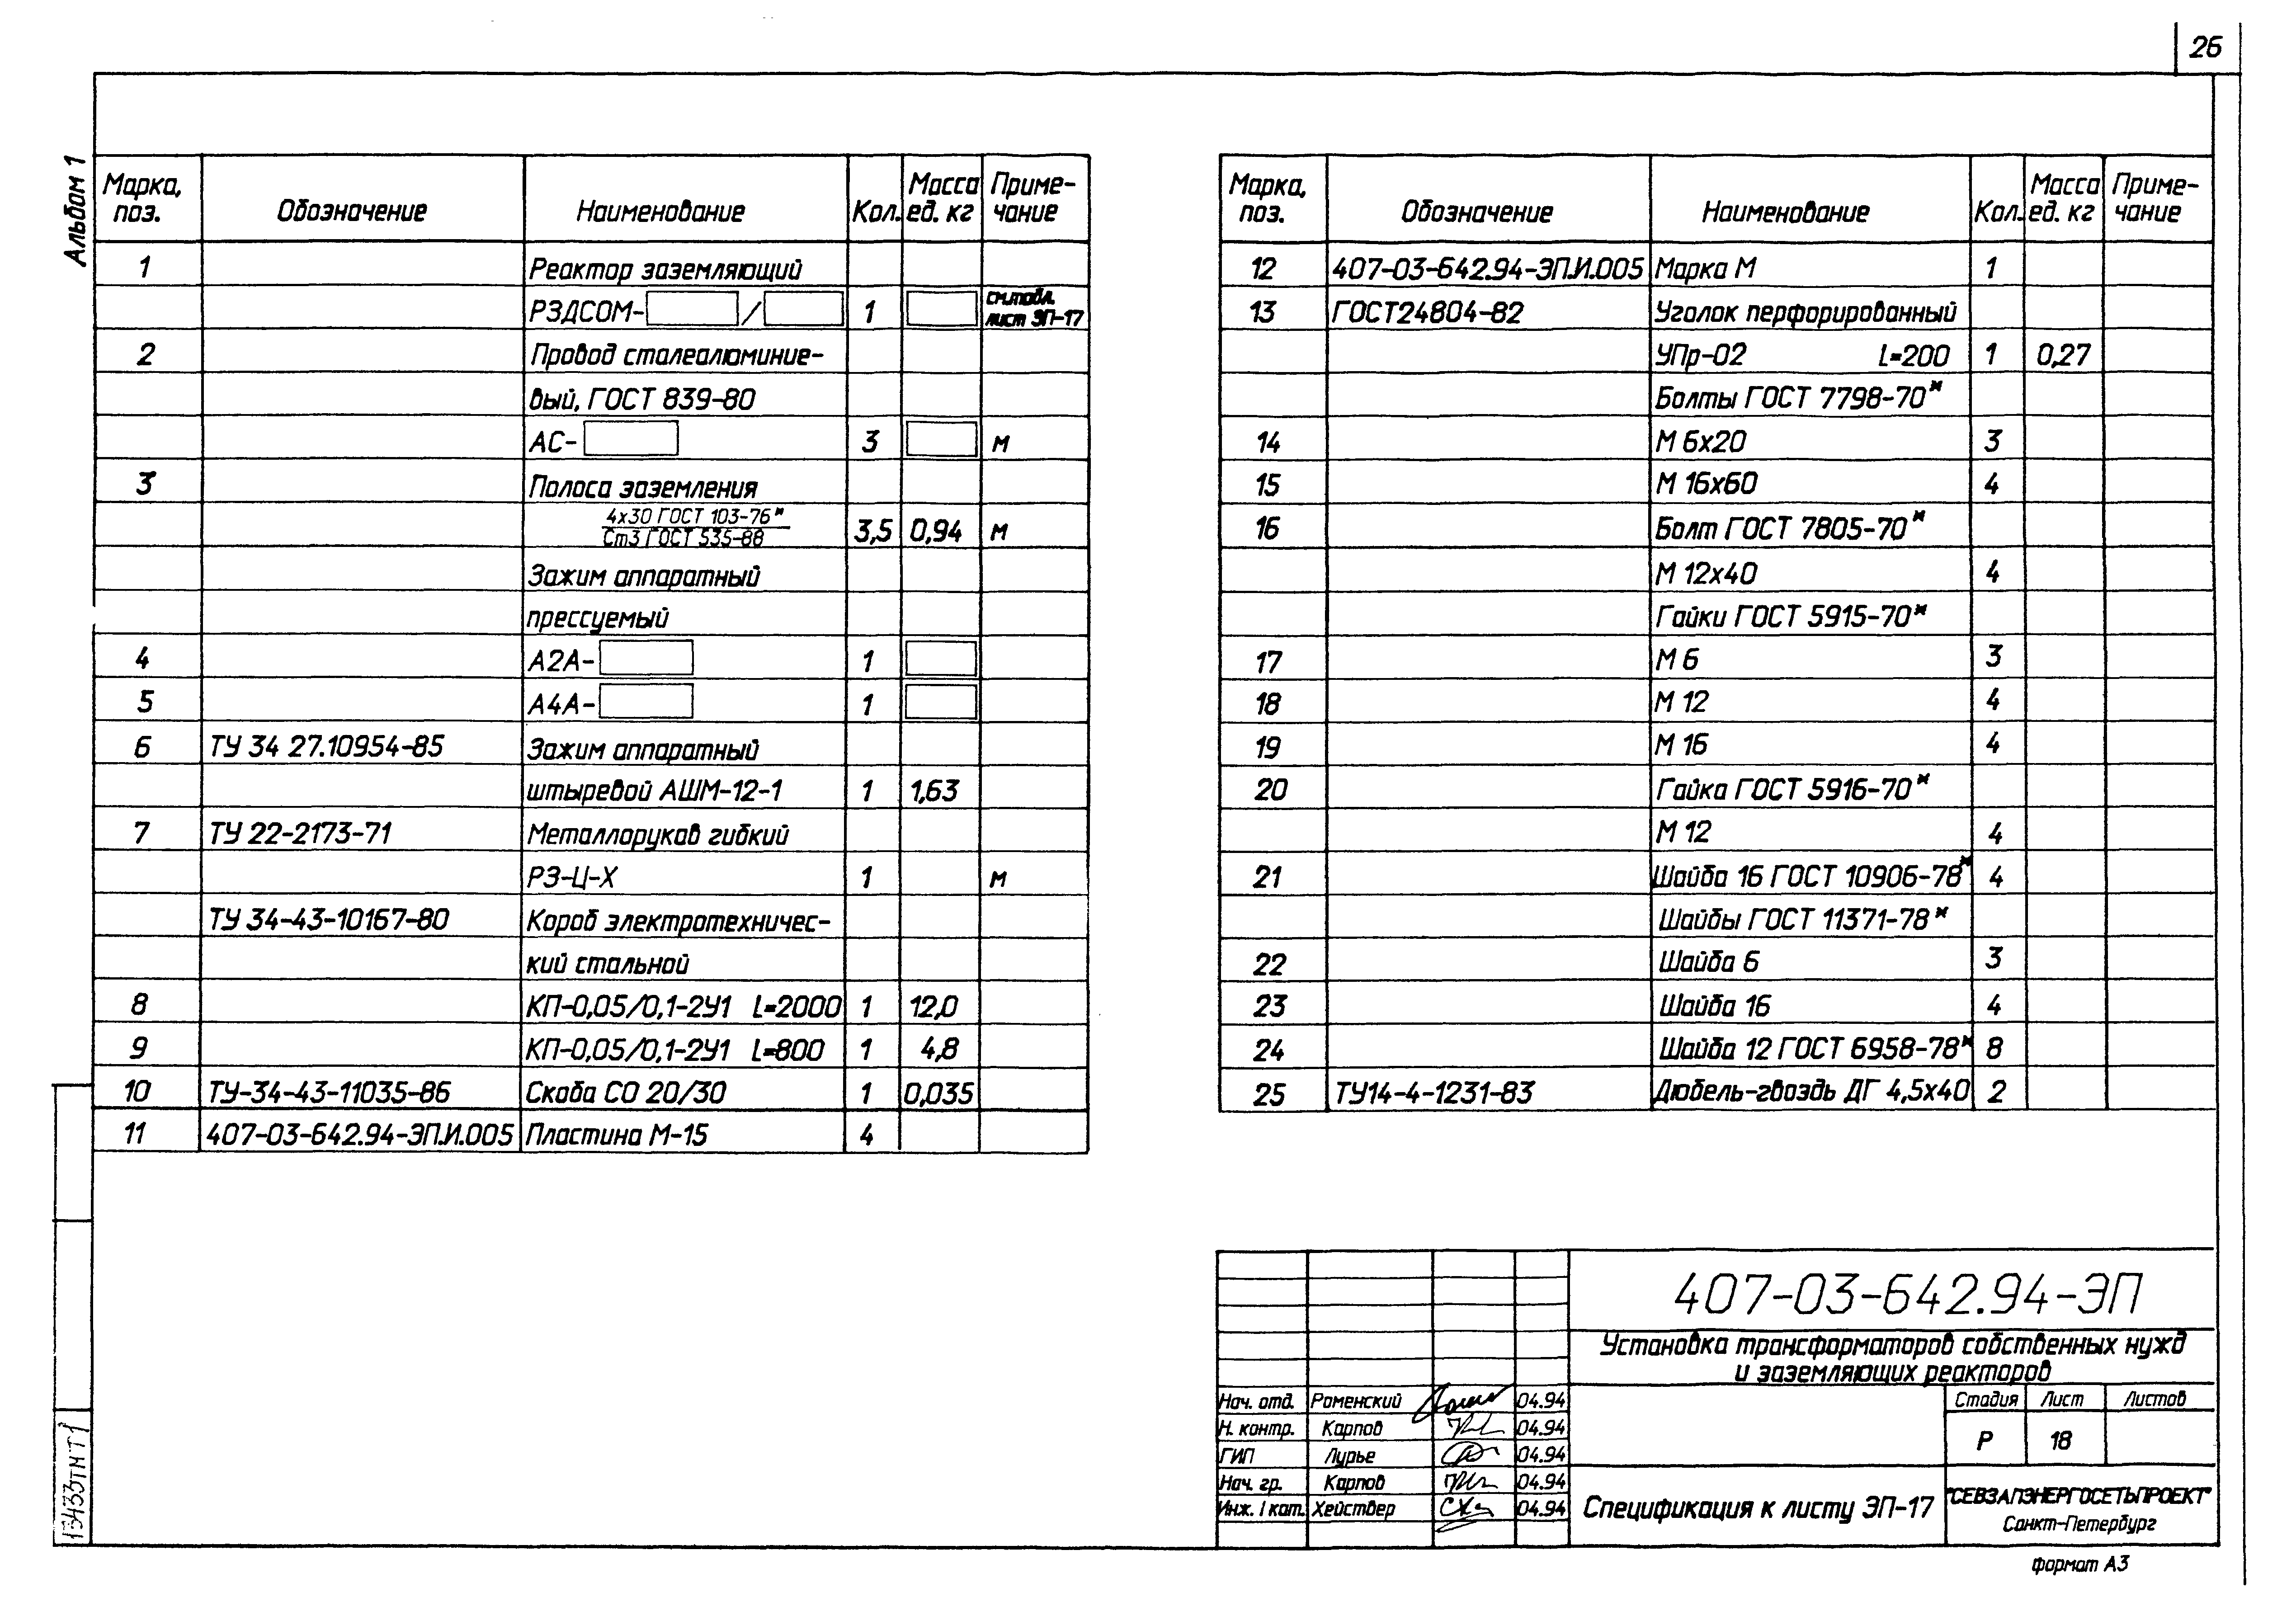 26
Альбом 1
Марка, поз. Обозначение Наименование Кол. Масса ед. кг Приме- чание
1 Реактор заземляющий
РЗДСОМ- / 1 см.табл. лист ЭП-17
2 Провод сталеалюминие-
вый, ГОСТ 839-80
АС- 3 м
3 Полоса заземления
4х30 ГОСТ 103-76*
Ст3 ГОСТ 535-88 3,5 0,94 м
Зажим аппаратный
прессуемый
4 А2А- 1
5 А4А- 1
6 ТУ 34 27.10954-85 Зажим аппаратный
штыревой АШМ-12-1 1 1,63
7 ТУ 22-2173-71 Металлорукав гибкий
РЗ-Ц-Х 1 м
ТУ 34-43-10167-80 Короб электротехничес-
кий стальной
8 КП-0,05/0,1-2У1 L=2000 1 12,0
9 КП-0,05/0,1-2У1 L=800 1 4,8
10 ТУ-34-43-11035-86 Скоба СО 20/30 1 0,035
11 407-03-642.94-ЭП.И.005 Пластина М-15 4
Марка, поз. Обозначение Наименование Кол. Масса ед. кг Приме- чание
12 407-03-642.94-ЭП.И.005 Марка М 1
13 ГОСТ24804-82 Уголок перфорированный
УПр-02 L=200 1 0,27
Болты ГОСТ 7798-70*
14 М 6х20 3
15 М 16х60 4
16 Болт ГОСТ 7805-70*
М 12х40 4
Гайки ГОСТ 5915-70*
17 М 6 3
18 М 12 4
19 М 16 4
20 Гайка ГОСТ 5916-70*
М 12 4
21 Шайба 16 ГОСТ 10906-78* 4
Шайбы ГОСТ 11371-78*
22 Шайба 6 3
23 Шайба 16 4
24 Шайба 12 ГОСТ 6958-78* 8
25 ТУ14-4-1231-83 Дюбель-гвоздь ДГ 4,5х40 2
407-03-642.94-ЭП
Установка трансформаторов собственных нужд
и заземляющих реакторов
Нач. отд. Роменский 04.94
Н. контр. Карпов 04.94
ГИП Лурье 04.94
Нач. гр. Карпов 04.94
Инж. I кат. Хействер 04.94
Стадия Лист Листов
Р 18
Спецификация к листу ЭП-17
"СЕВЗАПЭНЕРГОСЕТЬПРОЕКТ"
Санкт-Петербург
формат А3
13433тм Т1